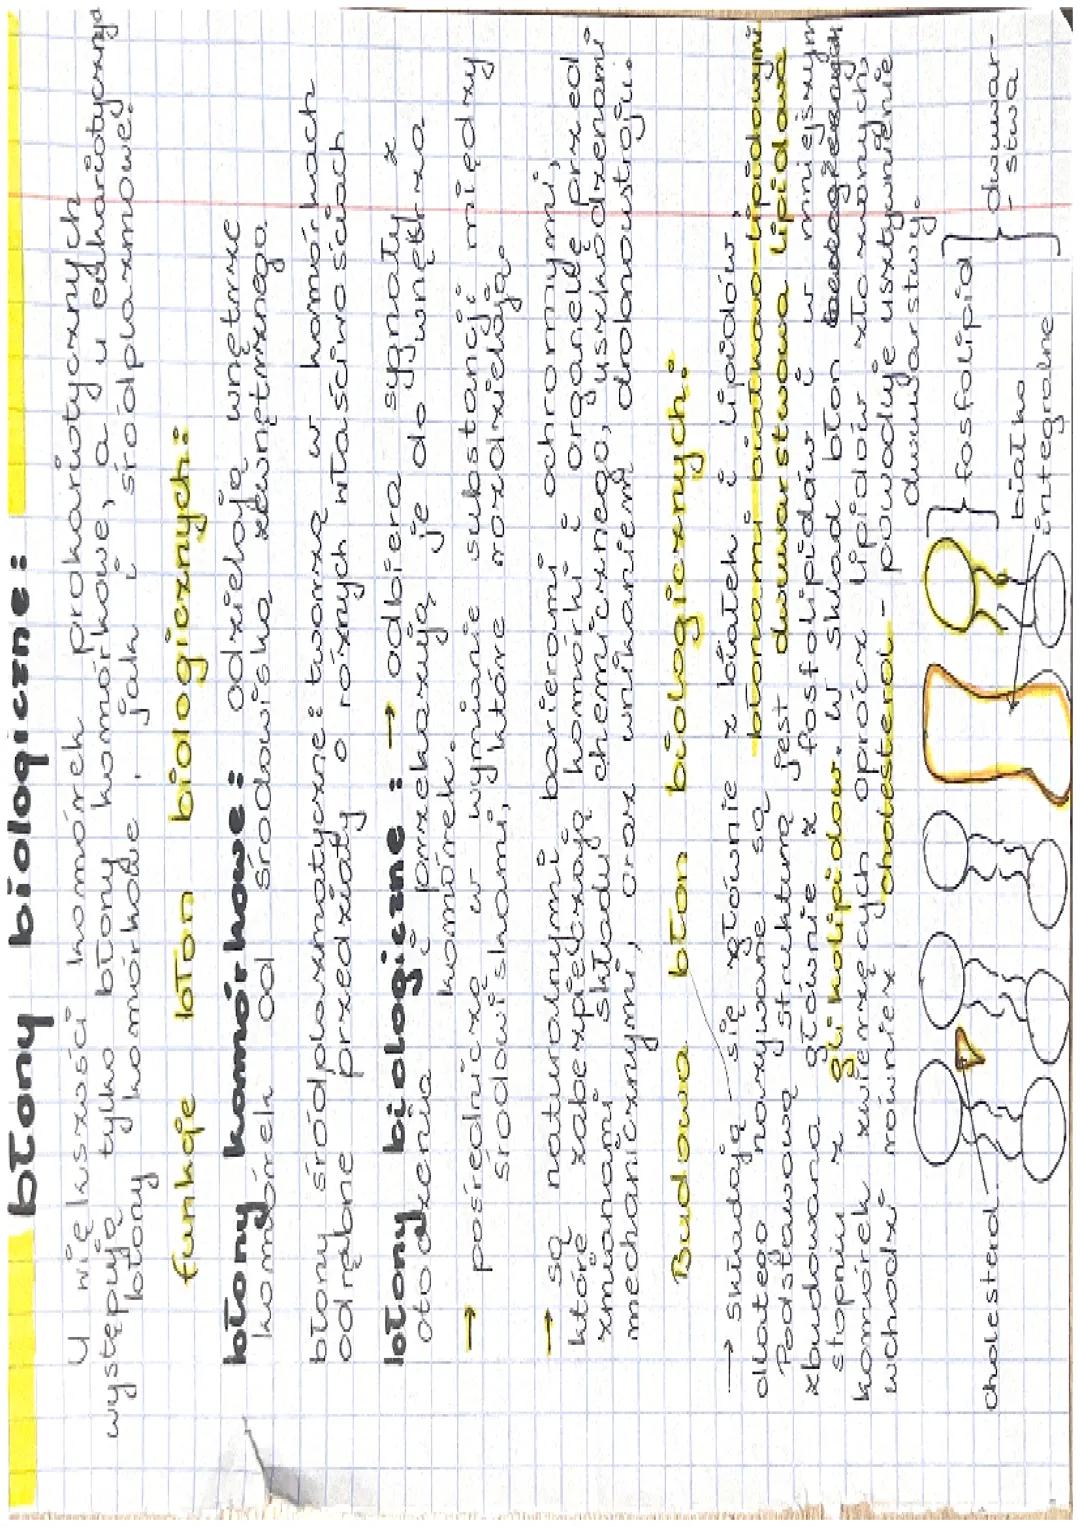 błony biologiczne:
U większości komórek prokariotycznych
występują tylko błony komórkowe, a u eukariotycznych
błony komórkowe, jak i śródplazmowe.
funkcje błon biologicznych:
błony komórkowe: odzielają wnętrze
komórek od środowiska zewnętrznego
błony śródplazmatyczne: tworzą w komórkach
odrębne przedziały o różnych właściwościach
błony biologiczne: → odbiera sygnały z
otoczenia i przekazują je do wnętrza
komórek.
→ pośrednicza w wymianie substancji między
środowiskami, które rozdzielają.
→ są naturalnymi barierami ochronnymi,
które zabezpieczają komórki i organelle przed
zmianami składu chemicznego, uszkodzeniami
mechanicznymi, oraz wnikaniem drobnoustrojów.
Budowa błon biologicznych:
→ składają się głównie z białek i lipidów
dlatego nazywane są błonami białkowo-lipidowymi
Podstawową strukturą jest dwuwarstwa lipidowa
zbudowana głównie z fosfolipidów i w mniejszym
stopniu z glikolipidów. W skład błon
komórek zwierzęcych oprócz lipidów złożonych
wchodzi również cholesterol - powoduje usztywnienie
dwuwarstwy.
cholesterol
fosfolipid
białko
integralne
dwuwar-
- stwa